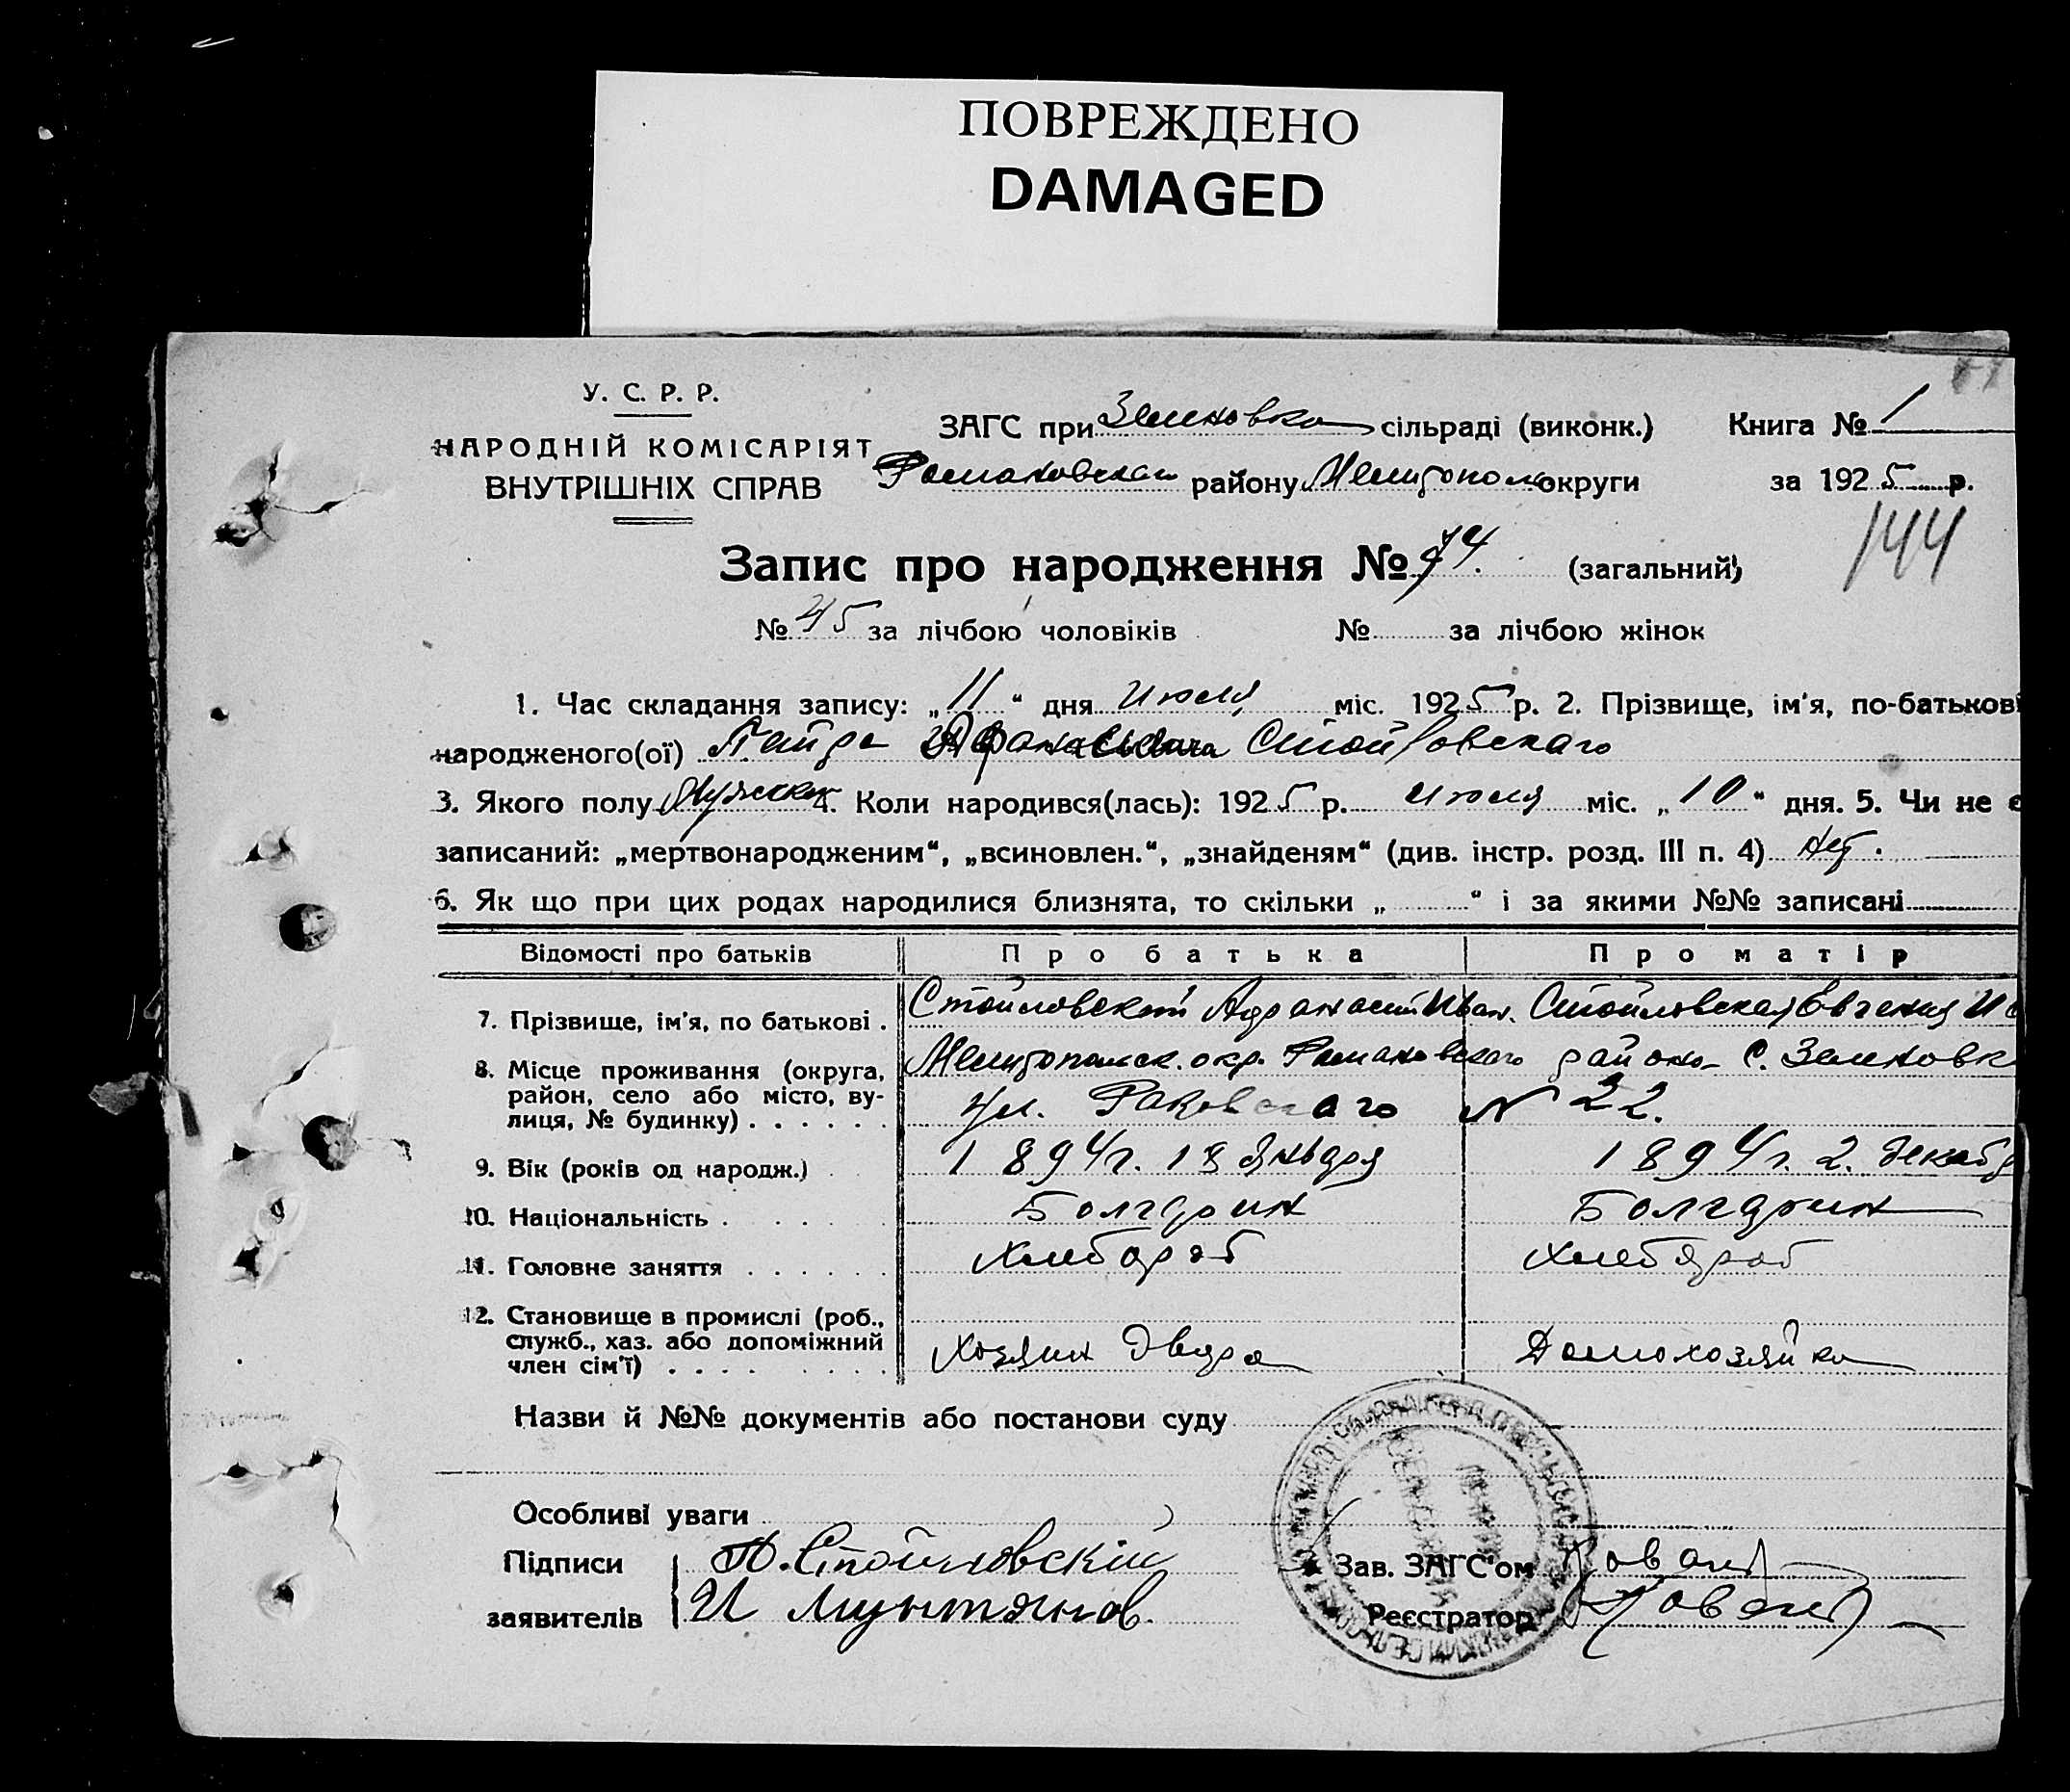 ПОВРЕЖДЕНО
DAMAGED
У. С. Р. Р.
НАРОДНІЙ КОМІСАРІЯТ
ВНУТРІШНІХ СПРАВ
ЗАГС при Зеленовка сільраді (виконк.) Книга № 1
Романовском району Мелитопол округи за 1925 р.
144
Запис про народження № 74. (загальний)
№ 45 за лічбою чоловіків № за лічбою жінок
1. Час складання запису: „11“ дня июля міс. 1925 р. 2. Прізвище, ім'я, по-батькові
народженого(ої) Стойловскаго
3. Якого полу Мужск 4. Коли народився(лась): 1925 р. июля міс. „10“ дня. 5. Чи не є
записаний: „мертвонародженим“, „всиновлен.“, „знайденям“ (див. інстр. розд. III п. 4) нет.
6. Як що при цих родах народилися близнята, то скільки „ “ і за якими №№ записані
Відомості про батьків Про батька Про матір
7. Прізвище, ім'я, по батькові . Стойловский Афанасий Иван. Стойловская Евгения И
8. Місце проживання (округа, район, село або місто, вулиця, № будинку) Мелитопольск. окр. Романовского района С. Зеленовк
ул. Раковскаго № 22.
9. Вік (років од народж.) 1894 г. 18 Января 1894 г. 2. Декабр
10. Національність Болгарин Болгарин
11. Головне заняття Хлебораб Хлебороб
12. Становище в промислі (роб.,
служб., хаз. або допоміжний
член сім'ї) Хозяин двара Домохозяйка
Назви й №№ документів або постанови суду
Особливі уваги
Підписи Стойловскій Зав. ЗАГС'ом Коваль
заявителів И Мунтянов. Реєстратор Коваль